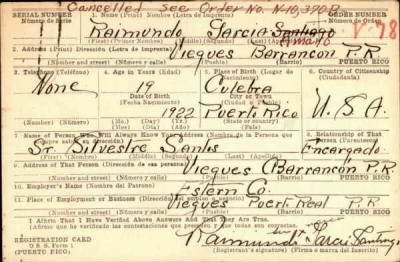 Cancelled See Order No. N-10,370B
SERIAL NUMBER 1. Name (Print) Nombre (Letra de Imprenta) ORDER NUMBER
Número de Serie Número de Orden
Raimundo Garcia Santiago V-78
(First) (Primer Nombre) (Middle) (Segundo) (Last) (Apellido)
2. Address (Print) Dirección (Letra de Imprenta)
Vieques Barrancon P.R.
Number and street (Número) (Town) (Población) PUERTO RICO
3. Telephone (Teléfono) 4. Age in Years (Edad) 5. Place of Birth (Lugar de Nacimiento) 6. Country of Citizenship (Ciudadanía)
None 19 Culebra
Date of Birth City or Town
(Fecha Nacimiento) (Ciudad o Pueblo)
1922 Puerto Rico U.S.A.
7. Name of Person Who Will Always Know Your Address (Nombre de la Persona que 8. Relationship of That Person (Parentesco)
siempre sabrá su dirección)
Sr Silvestre Santos Encargado
(Mr., Mrs., Miss) (First) (Middle) (Last)
9. Address of That Person (Dirección de esa persona)
Vieques Barrancón P.R.
Number and street (Número) (Town) (Población) PUERTO RICO
10. Employer's Name (Nombre del Patrono)
Estern Co.
11. Place of Employment or Business
Vieques Puerto Real P.R.
Number and street (Número) (Town) (Población) PUERTO RICO
I Affirm That I Have Verified Above Answers And That They Are True.
(Afirmo que he verificado las contestaciones que preceden y que son ciertas)
REGISTRATION CARD
D S S Form 1
Raimundo Garcia Santiago
Registrant's signature (Firma o marca del Inscrito)